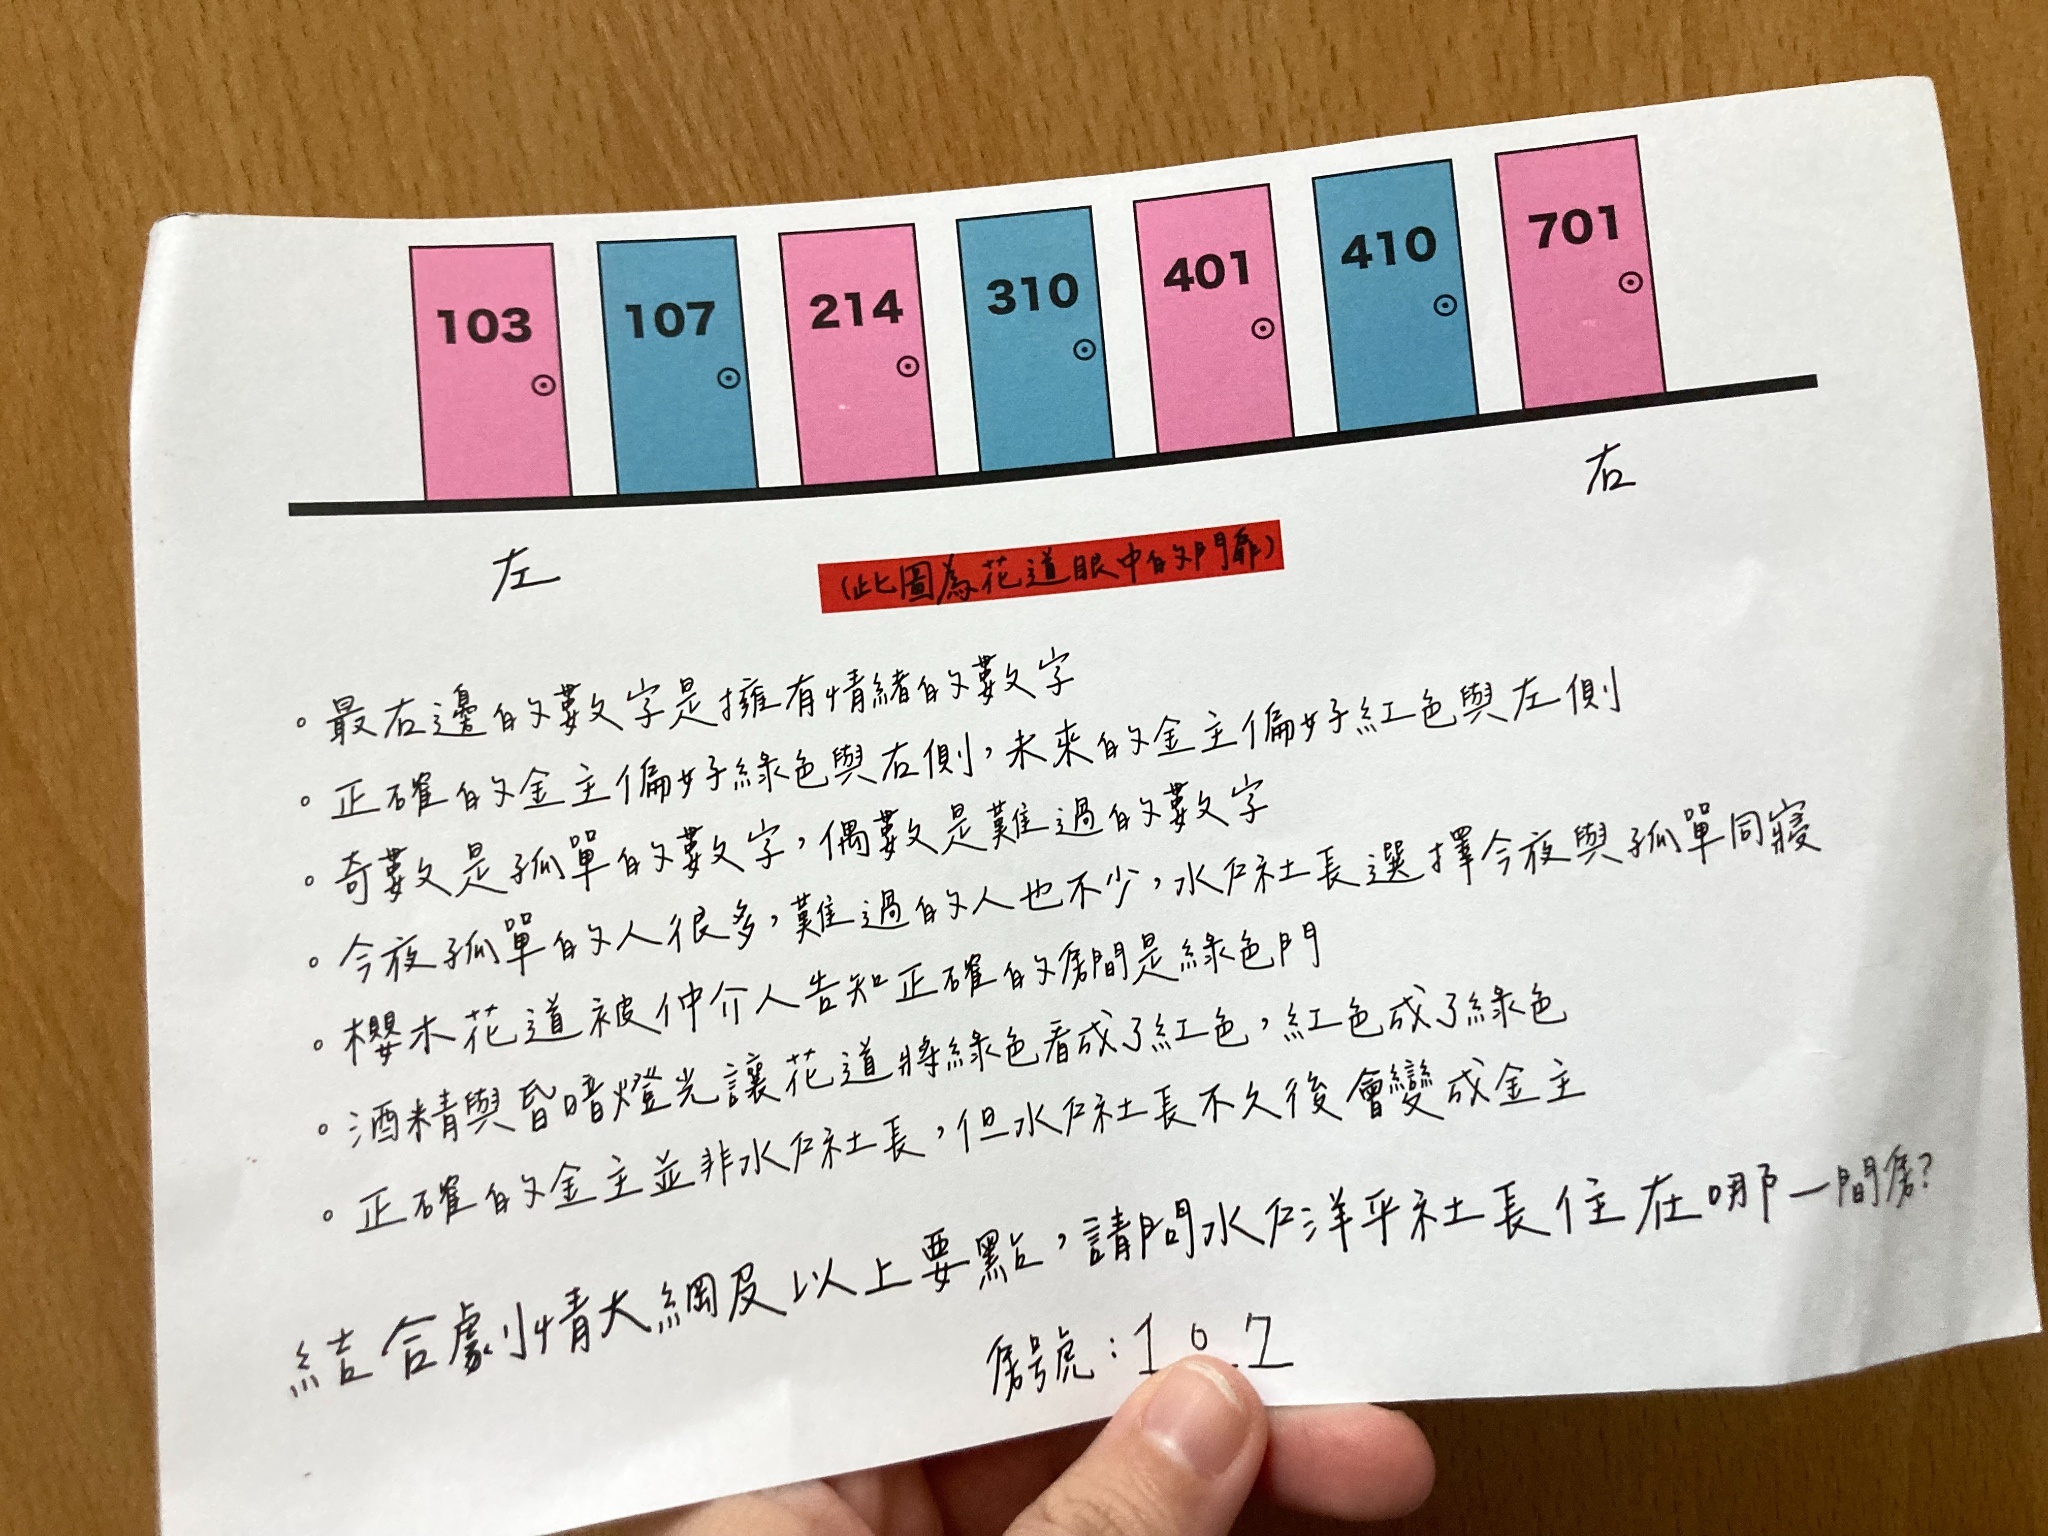 103 107 214 310 401 410 701
左 右
(此圖為花道眼中的門扉)
。最右邊的數字是擁有情緒的數字
。正確的金主偏好綠色與右側,未來的金主偏好紅色與左側
。奇數是孤單的數字,偶數是難過的數字
。今夜孤單的人很多,難過的人也不少,水戶社長選擇今夜與孤單同寢
。櫻木花道被仲介人告知正確的房間是綠色門
。酒精與昏暗燈光讓花道將綠色看成了紅色,紅色成了綠色
。正確的金主並非水戶社長,但水戶社長不久後會變成金主
結合劇情大綱及以上要點,請問水戶洋平社長住在哪一間房?
房號:107